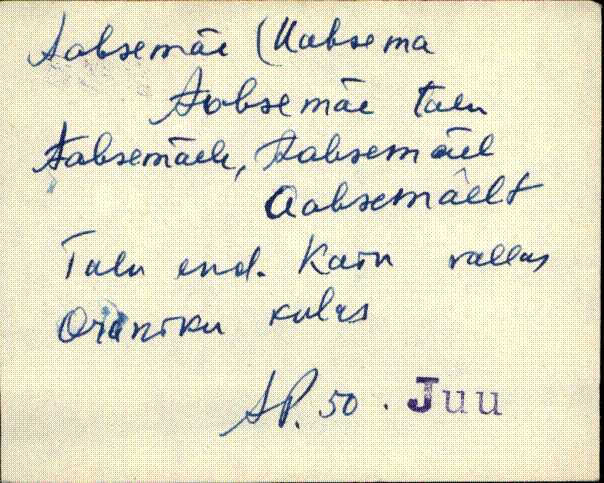 Aabsemäe (Uabsema
Aabsemäe talu
Aabsemäele, Aabsemäel
Aabsemäelt
Talu end. Kaiu vallas
Oraniku külas
AP. 50. Juu